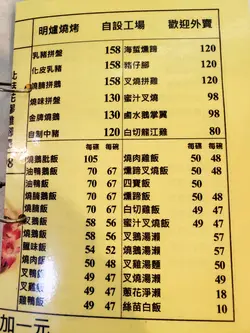 明爐燒烤 自設工場 歡迎外賣
乳豬拼盤 158 海蜇燻蹄 120
化皮乳豬 158 豬仔腳 120
燒腩拼鵝 158 叉燒拼雞 120
燒味拼盤 130 蜜汁叉燒 98
金牌燒鵝 130 鹵水鵝掌翼 98
自制中豬 120 白切龍江雞 80
每碟 每碗 每碟 每碗
燒鵝髀飯 105 燒肉雞飯 50 48
油鴨飯 70 67 燻蹄叉燒飯 50 48
燒鴨飯 70 67 四寶飯 50
燒腩飯 70 67 燻蹄飯 50 48
叉鵝飯 58 56 白切雞飯 49 47
燒鵝飯 58 56 蜜汁叉燒飯 49 47
臘味飯 54 52 叉鵝湯瀨 51
燒肉飯 50 48 燒鵝湯瀨 51
叉鴨飯 50 叉雞湯麵 50
叉雞飯 49 47 叉燒湯瀨 51
雞鴨飯 49 47 蔥花淨瀨 18
絲苗白飯 10
加一元